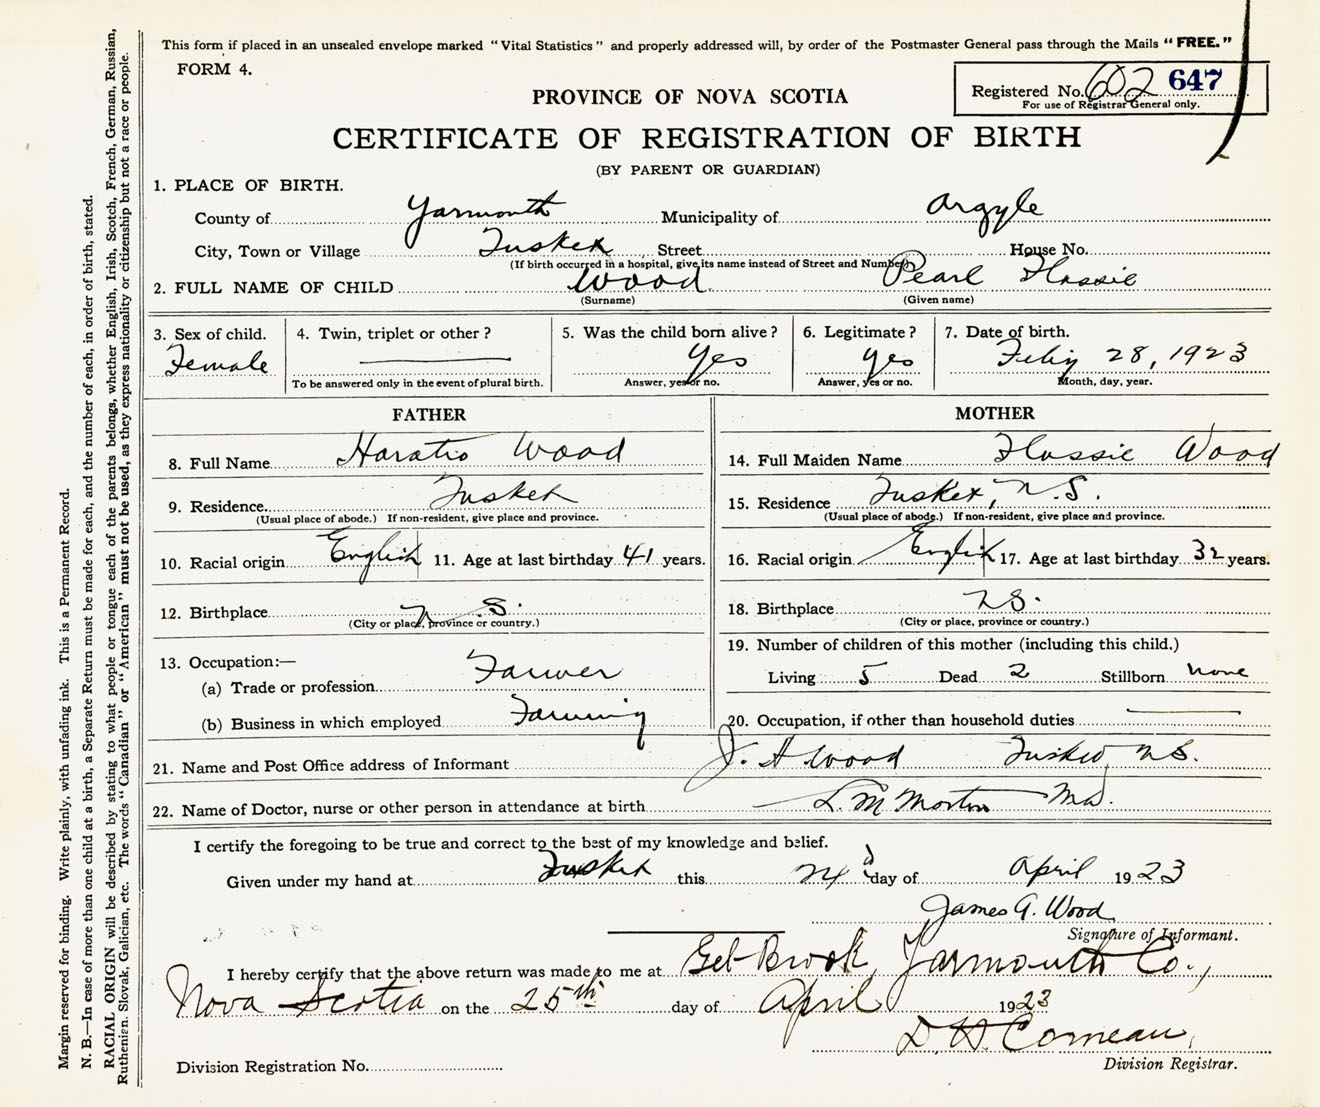 This form if placed in an unsealed envelope marked "Vital Statistics" and properly addressed will, by order of the Postmaster General pass through the Mails "FREE."
FORM 4.
Registered No. 602 647
For use of Registrar General only.
PROVINCE OF NOVA SCOTIA
CERTIFICATE OF REGISTRATION OF BIRTH
(BY PARENT OR GUARDIAN)
1. PLACE OF BIRTH.
County of Yarmouth Municipality of Argyle
City, Town or Village Tusket Street House No.
(If birth occurred in a hospital, give its name instead of Street and Number)
2. FULL NAME OF CHILD Wood Pearl Flossie
(Surname) (Given name)
3. Sex of child. Female
4. Twin, triplet or other?
To be answered only in the event of plural birth.
5. Was the child born alive? Yes
Answer, yes or no.
6. Legitimate? Yes
Answer, yes or no.
7. Date of birth. Feby 28, 1923
Month, day, year.
FATHER
8. Full Name Horatio Wood
9. Residence. Tusket
(Usual place of abode.) If non-resident, give place and province.
10. Racial origin English 11. Age at last birthday 41 years.
12. Birthplace N.S.
(City or place, province or country.)
13. Occupation:—
(a) Trade or profession Farmer
(b) Business in which employed Farming
MOTHER
14. Full Maiden Name Flossie Wood
15. Residence Tusket, N.S.
(Usual place of abode.) If non-resident, give place and province.
16. Racial origin English 17. Age at last birthday 32 years.
18. Birthplace N.S.
(City or place, province or country.)
19. Number of children of this mother (including this child.)
Living 5 Dead 2 Stillborn none
20. Occupation, if other than household duties
21. Name and Post Office address of Informant J. A Wood Tusket N.S.
22. Name of Doctor, nurse or other person in attendance at birth L. M Morton MD.
I certify the foregoing to be true and correct to the best of my knowledge and belief.
Given under my hand at Tusket this 24 day of April 1923
James A. Wood
Signature of Informant.
I hereby certify that the above return was made to me at Gel Brook, Yarmouth Co.,
Nova Scotia on the 25th day of April 1923
D. H. Comeau,
Division Registrar.
Division Registration No.
Margin reserved for binding. Write plainly, with unfading ink. This is a Permanent Record.
N. B.—In case of more than one child at a birth, a Separate Return must be made for each, and the number of each, in order of birth, stated.
RACIAL ORIGIN will be described by stating to what people or tongue each of the parents belongs, whether English, Irish, Scotch, French, German, Russian,
Ruthenian, Slovak, Galician, etc. The words "Canadian" or "American" must not be used, as they express nationality or citizenship but not a race or people.